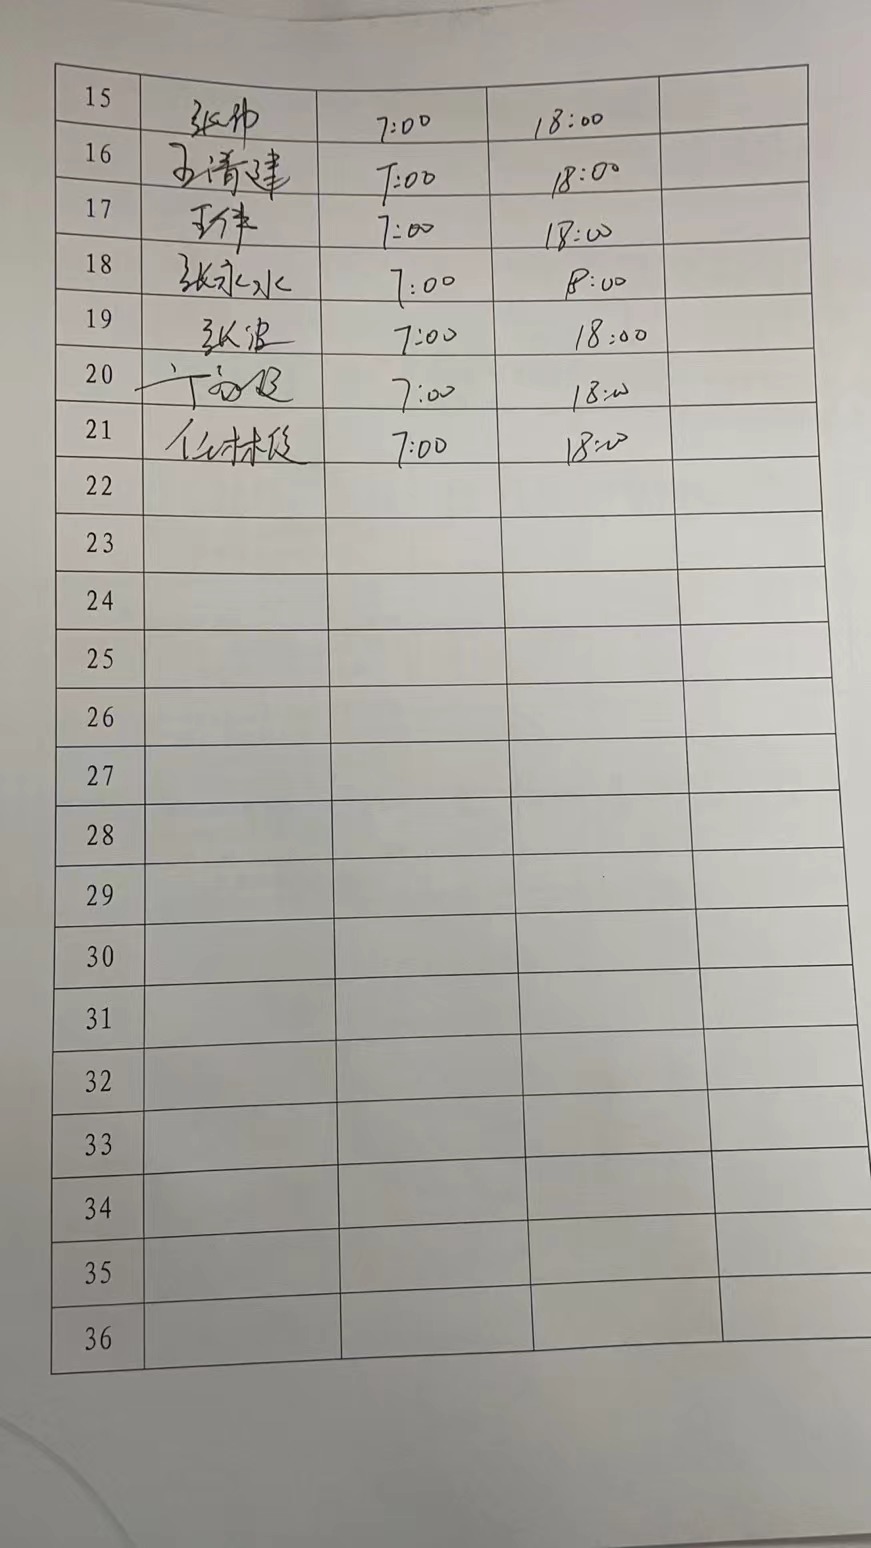 15 张帅 7:00 18:00
16 王清建 7:00 18:00
17 王伟 7:00 18:00
18 张永水 7:00 8:00
19 张波 7:00 18:00
20 7:00 18:00
21 任林俊 7:00 18:00
22
23
24
25
26
27
28
29
30
31
32
33
34
35
36